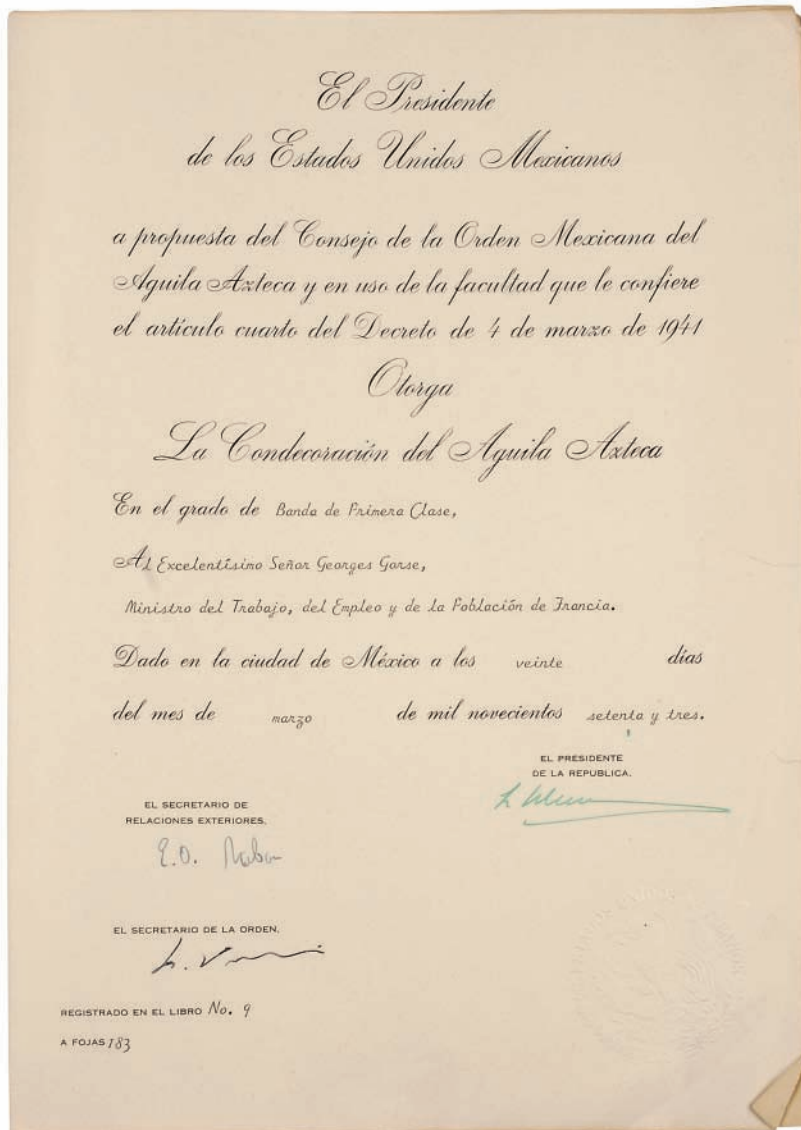 El Presidente
de los Estados Unidos Mexicanos
a propuesta del Consejo de la Orden Mexicana del
Aguila Azteca y en uso de la facultad que le confiere
el artículo cuarto del Decreto de 4 de marzo de 1941
Otorga
La Condecoración del Aguila Azteca
En el grado de Banda de Primera Clase,
Al Excelentísimo Señor Georges Gorse,
Ministro del Trabajo, del Empleo y de la Población de Francia.
Dado en la ciudad de México a los veinte días
del mes de marzo de mil novecientos setenta y tres.
EL PRESIDENTE
DE LA REPUBLICA.
EL SECRETARIO DE
RELACIONES EXTERIORES.
E.O. Rabasa
EL SECRETARIO DE LA ORDEN.
REGISTRADO EN EL LIBRO No. 9
A FOJAS 183